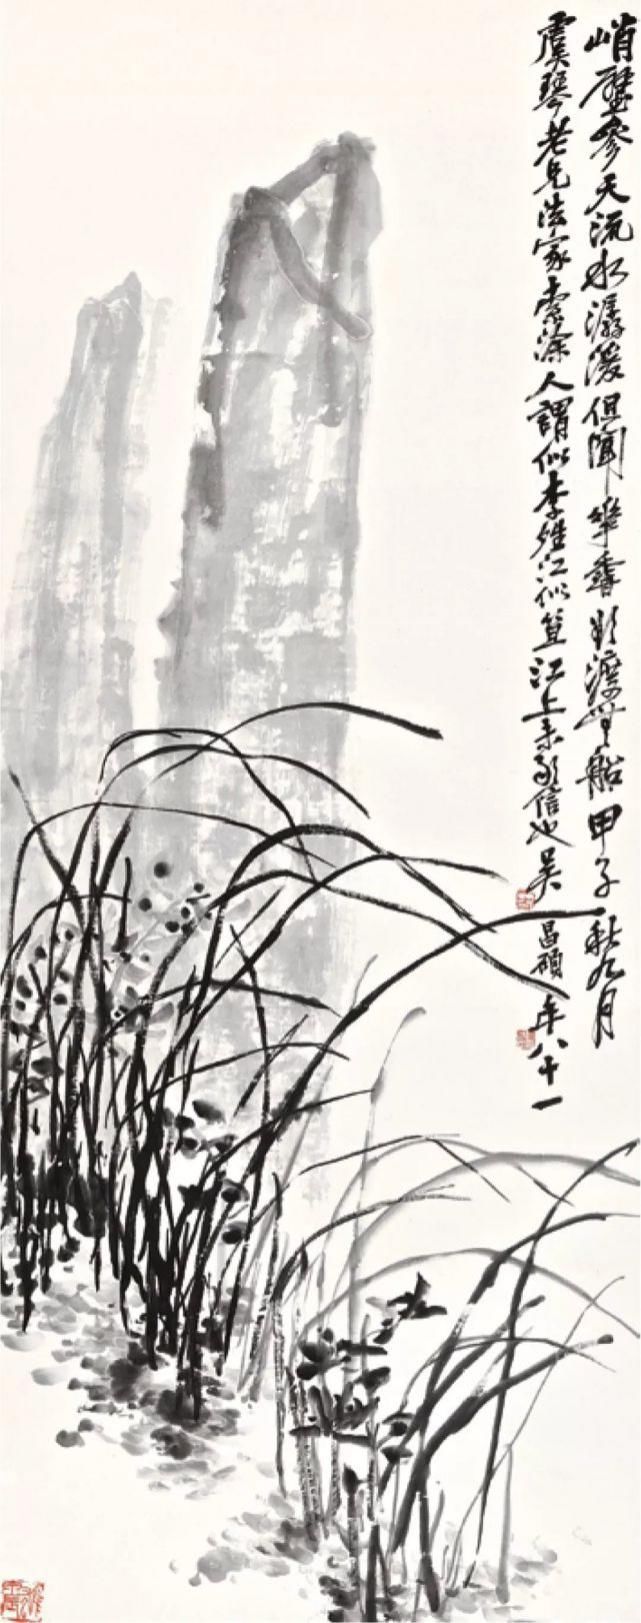 峭壁參天流水潺湲但聞華香欲渡無船甲子秋九月
虞琴老兄法家索塗人謂似李維江似笪江上未敢信也吳昌碩年八十一